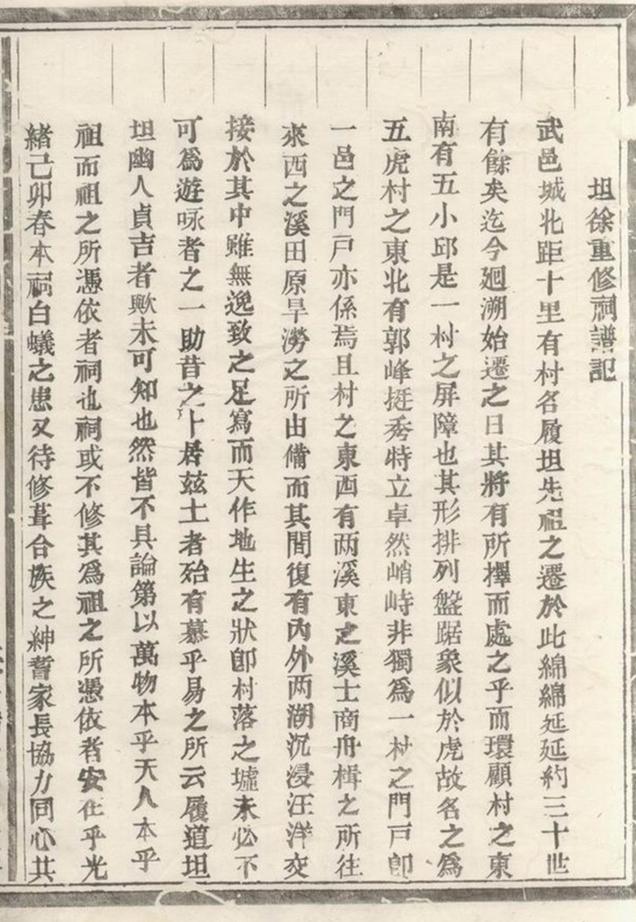 坦徐重修祠譜記
武邑城北距十里有村名履坦先祖之遷於此綿綿延延約三十世
有餘矣迄今廻溯始遷之日其將有所擇而處之乎而環顧村之東
南有五小邱是一村之屏障也其形排列盤踞象似於虎故名之為
五虎村之東北有郭峰挺秀特立卓然峭峙非獨為一村之門戸卽
一邑之門戸亦係焉且村之東西有兩溪東之溪士商舟楫之所往
來西之溪田原旱澇之所由備而其間復有內外兩湖沉浸汪洋交
接於其中雖無逸致之足寫而天作地生之狀卽村落之墟未必不
可爲遊咏者之一助昔之卜居玆土者殆有慕乎易之所云履道坦
坦幽人貞吉者歟未可知也然皆不具論第以萬物本乎天人本乎
祖而祖之所憑依者祠也祠或不修其爲祖之所憑依者安在乎光
緒己卯春本祠白蟻之患又待修葺合族之紳耆家長協力同心共